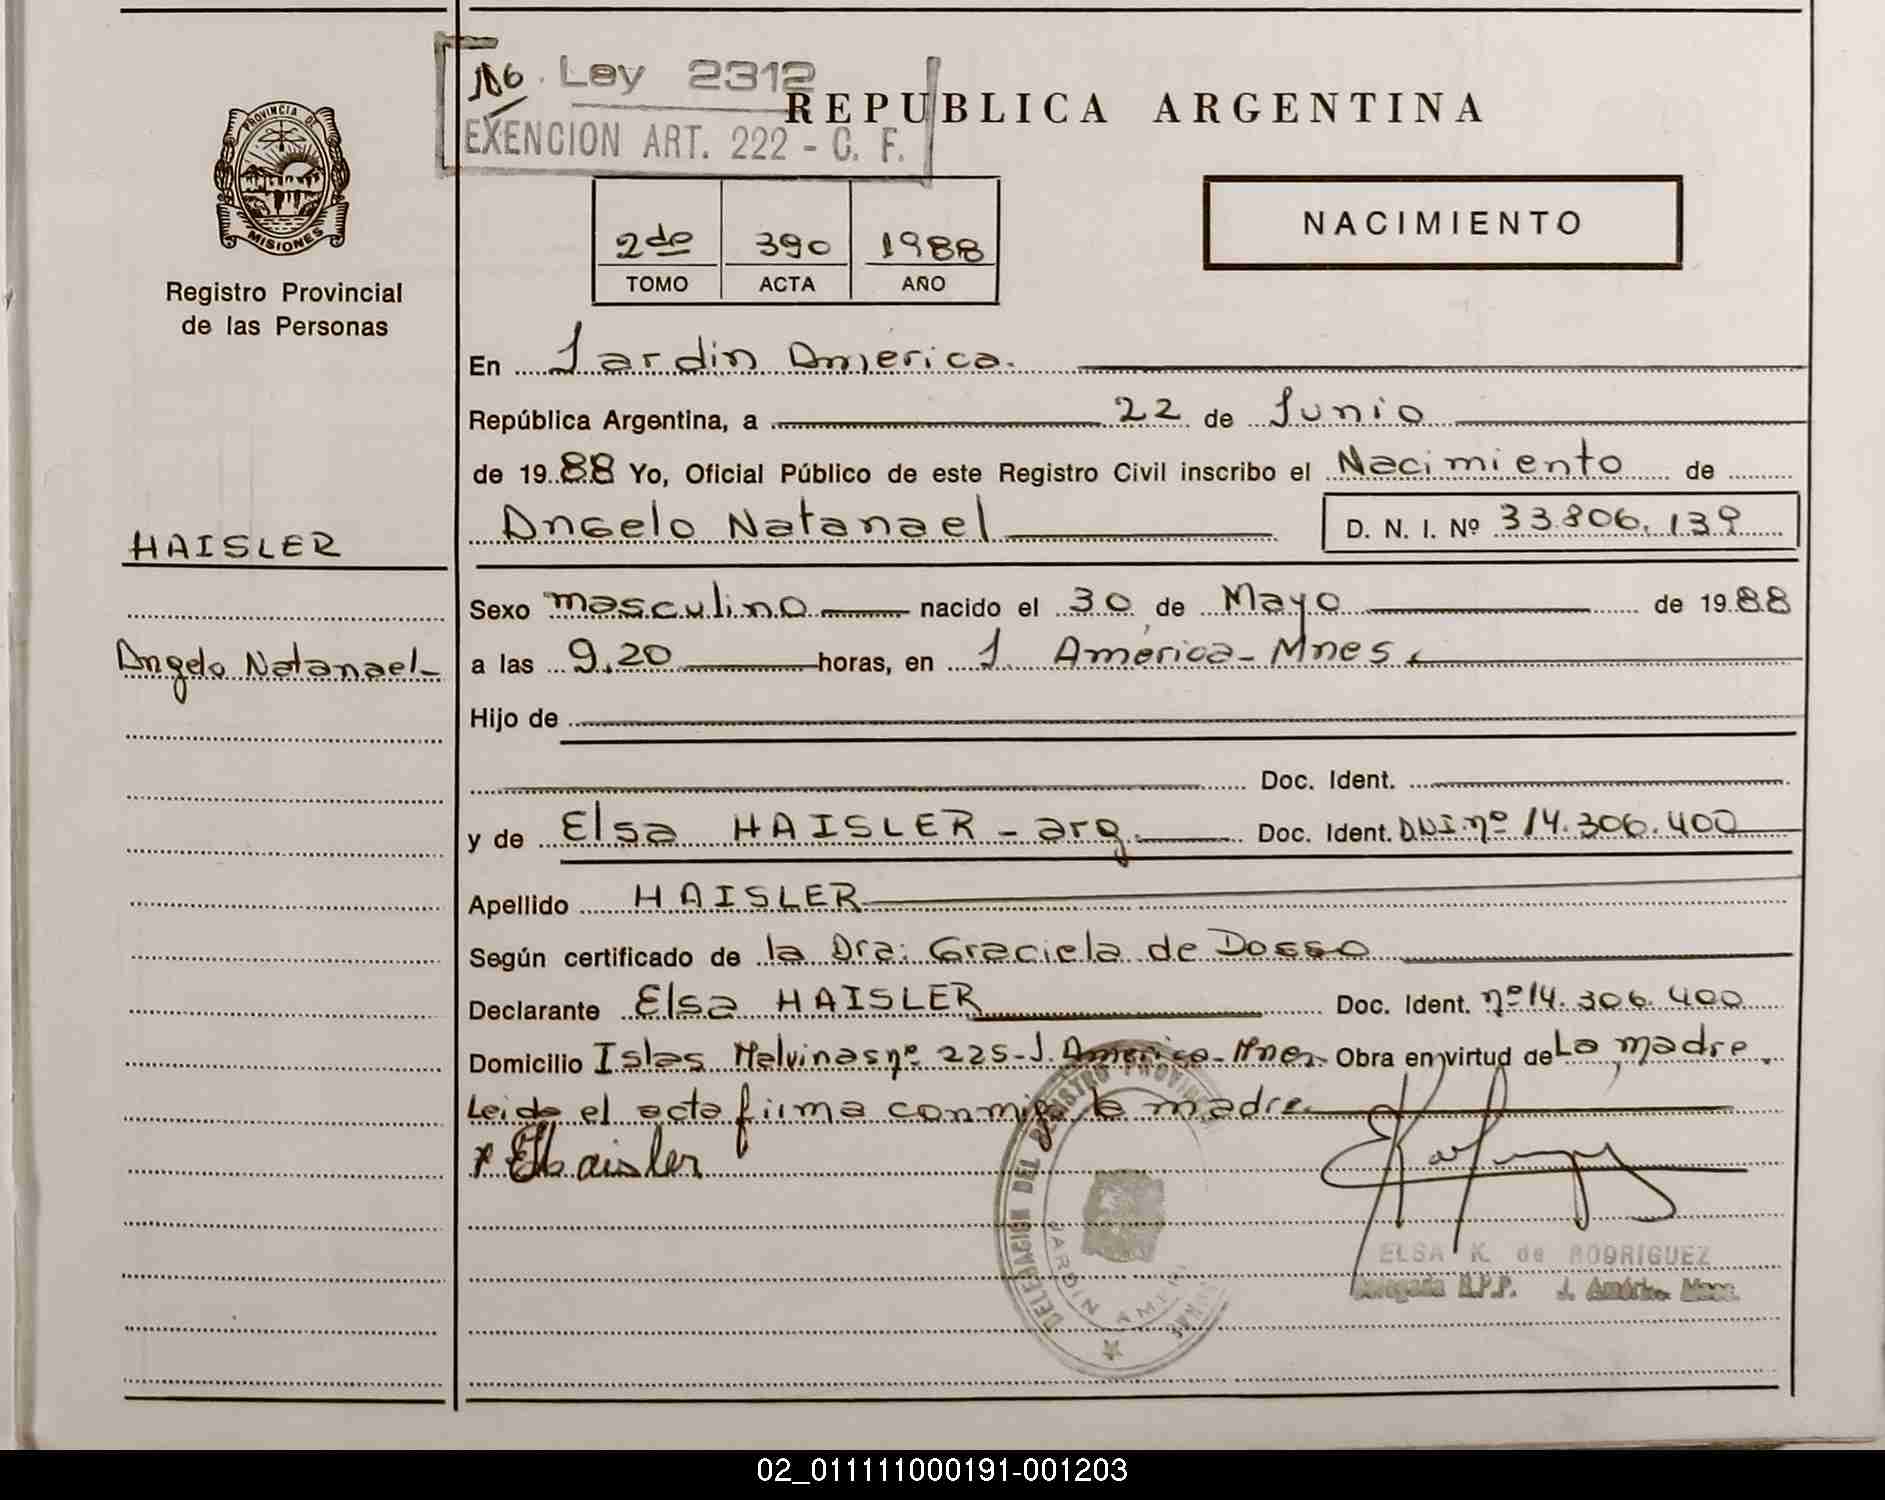 No. Ley 2312
EXENCION ART. 222 - C. F.
REPUBLICA ARGENTINA
PROVINCIA DE
MISIONES
Registro Provincial
de las Personas
2do 390 1988
TOMO ACTA AÑO
NACIMIENTO
En Jardin America.
República Argentina, a 22 de Junio
de 1988 Yo, Oficial Público de este Registro Civil inscribo el Nacimiento de
Angelo Natanael D. N. I. Nº 33.806.139
HAISLER
Angelo Natanael-
Sexo masculino nacido el 30 de Mayo de 1988
a las 9.20 horas, en J. América - Mnes.
Hijo de
Doc. Ident.
y de Elsa HAISLER - arg. Doc. Ident. DNI. nº 14.306.400
Apellido HAISLER
Según certificado de la Dra: Graciela de Dosso
Declarante Elsa HAISLER Doc. Ident. nº 14.306.400
Domicilio Islas Malvinas nº 225 - J. America - Mnes. Obra en virtud de La madre.
Leida el acta firma conmigo la madre
x EHaisler
DELEGACION DEL REGISTRO PROVINCIAL
JARDIN AMERI
ELSA K. de RODRIGUEZ
Delegada R.P.P. J. América Mnes.
02_011111000191-001203